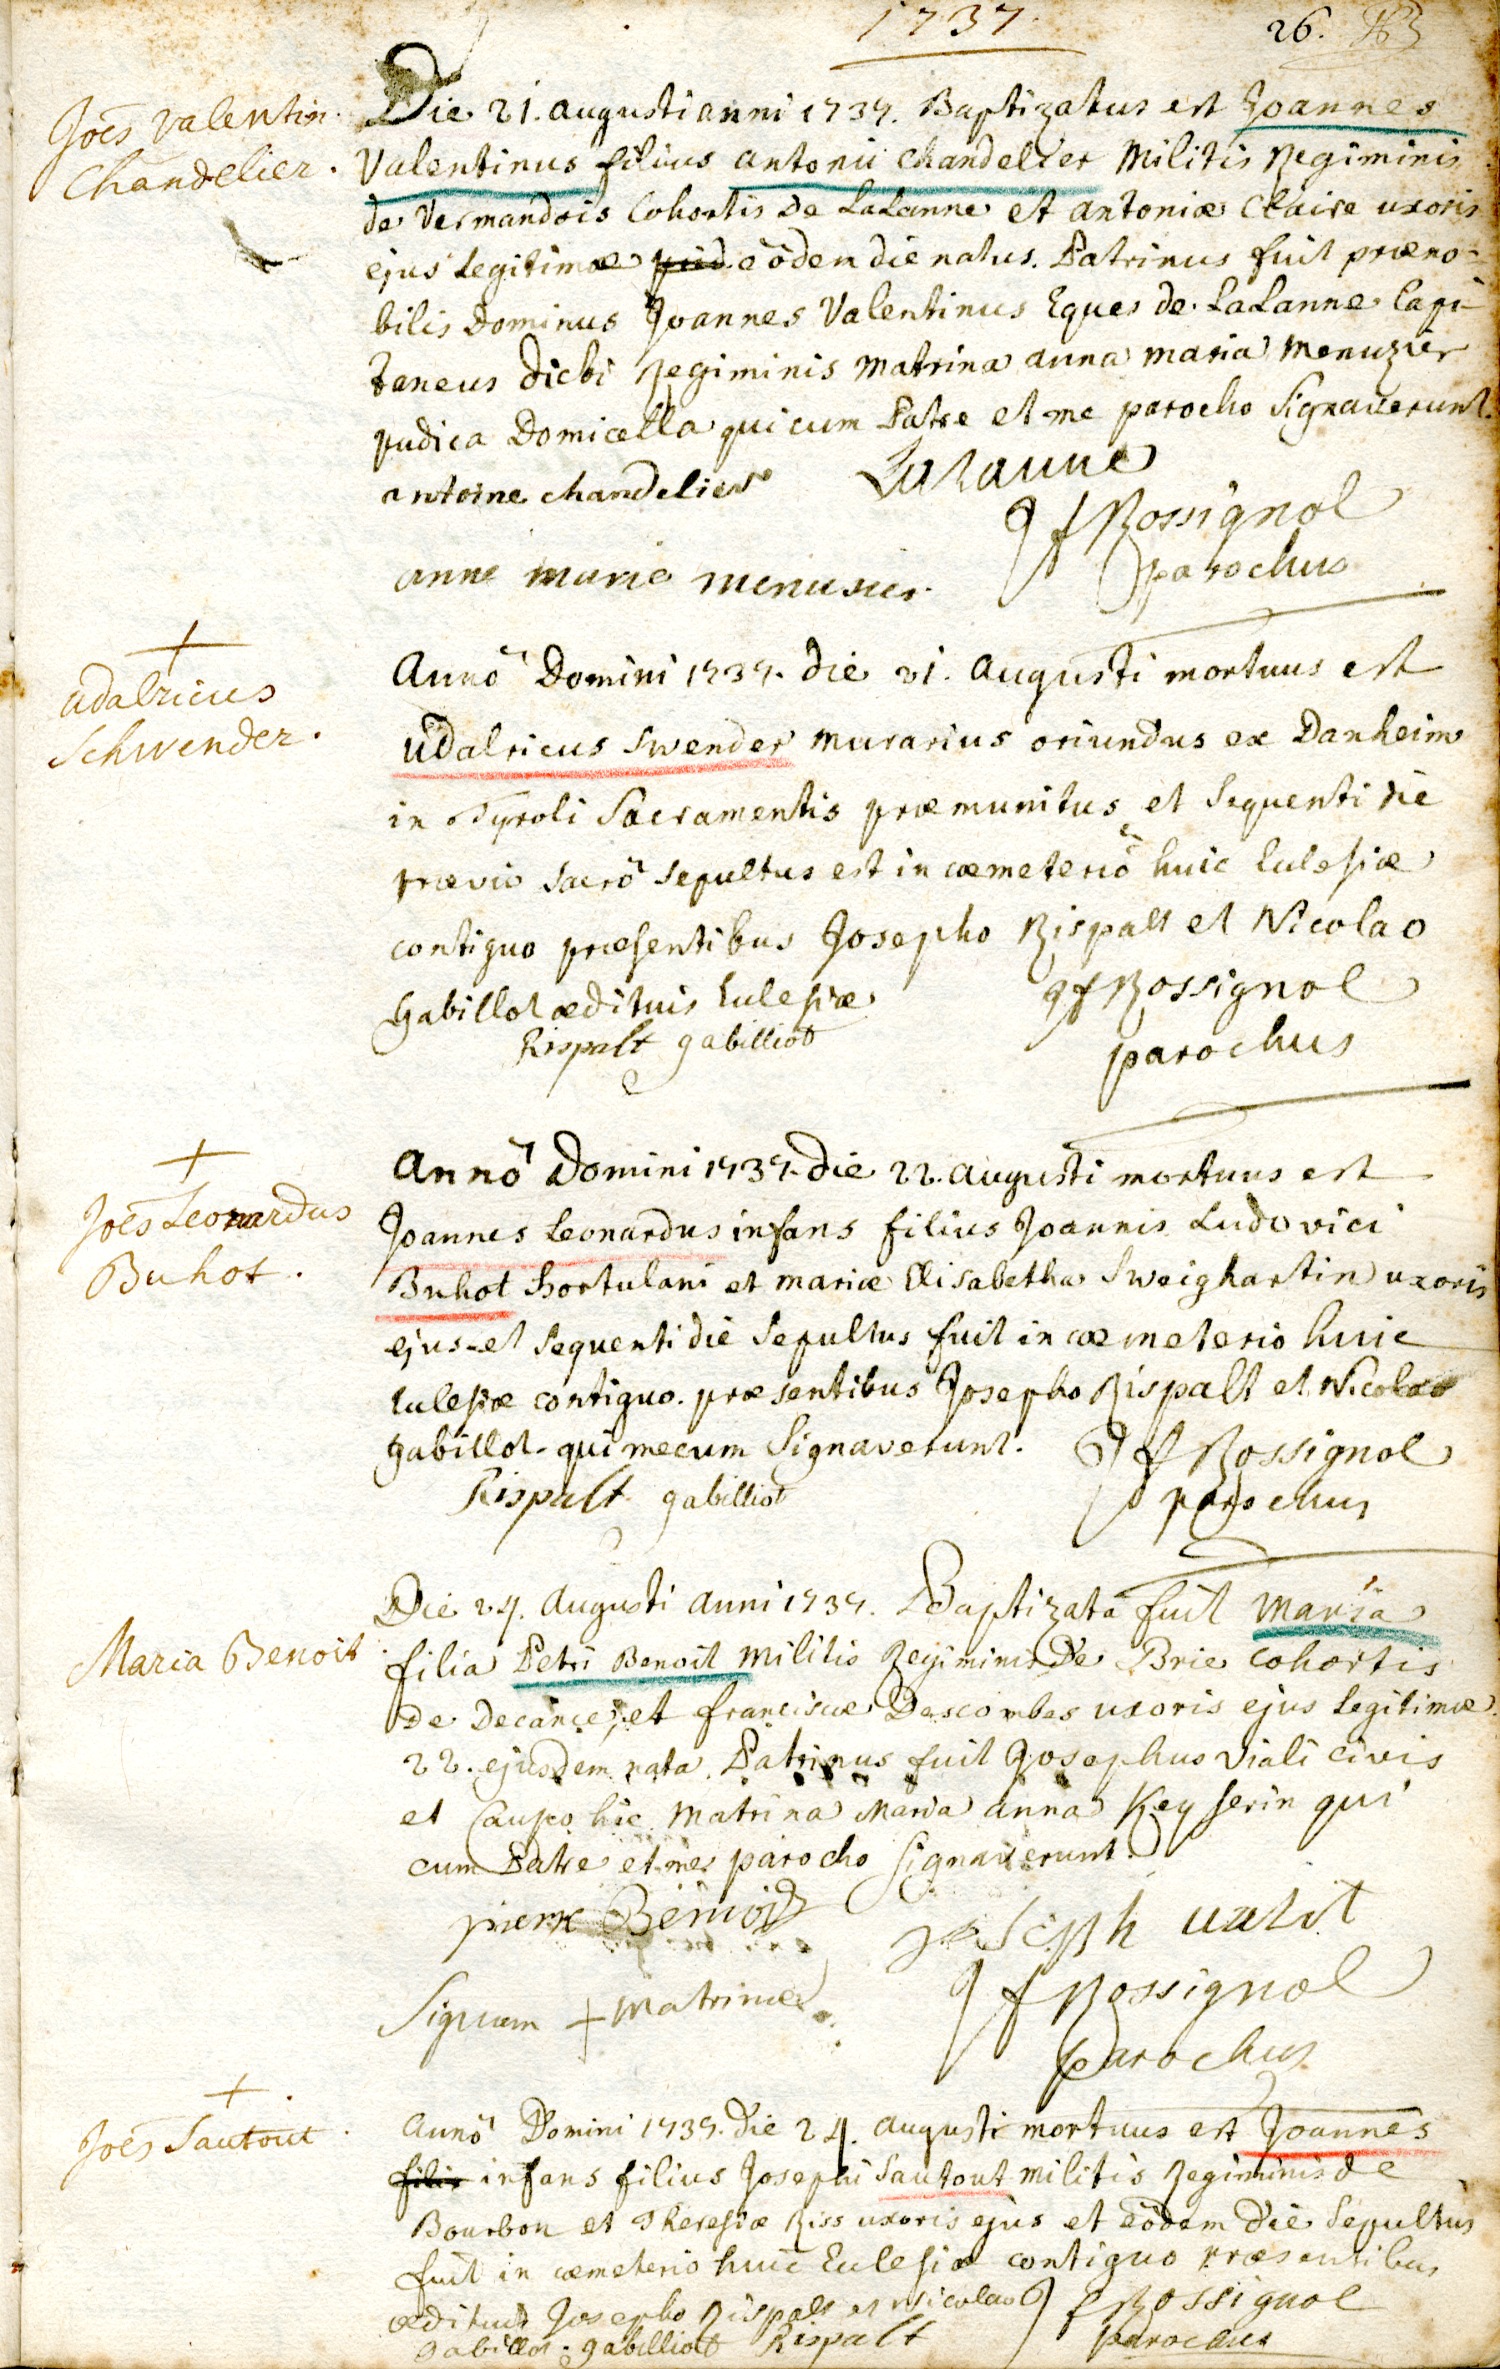 1737.
26.
Joēs Valentin
Chandelier.
Die 21. augusti anni 1737. Baptizatus est Joannes
Valentinus filius antonii Chandelier Militis Regiminis
de Vermandois Cohortis De LaLanne et antoniæ Claire uxoris
ejus Legitimæ eôdem die natus. Patrinus fuit præno-
bilis Dominus Joannes Valentinus Eques de LaLanne Capi-
taneus dicti Regiminis Matrina anna maria Menuzier
pudica Domicella qui cum Patre et me parocho Signaverunt.
antoine chandelier
LaLanne
J f Rossignol
parochus
anne marie menusier.
+
udalricus
Schwender.
Annô Domini 1737. die 21. Augusti mortuus est
udalricus Swender murarius oriundus ex Danheim
in Tyroli Sacramentis præmunitus et Sequenti die
prævio sacrô Sepultus est in cæmeteriô huic Eclesiæ
contiguo præsentibus Josepho Rispalt et Nicolao
Gabillot ædituis Eclesiæ.
J f Rossignol
parochus
Rispalt gabilliot
+
Joēs Leonardus
Buhot.
Annô Domini 1737. Die 22. augusti mortuus est
Joannes Leonardus infans filius Joannis Ludovici
Buhot hortulani et mariæ Elisabetha Sweighartin uxoris
ejus et Sequenti die Sepultus fuit in cæmeterio huic
Eclesiæ contiguo. præsentibus Josepho Rispalt et Nicolao
gabillot. qui mecum Signaverunt.
J f Rossignol
parochus
Rispalt gabilliot
Maria Benoit
Die 24. Augusti anni 1737. Baptizata fuit Maria
filia Petri Benoit Militis Regiminis De Brie Cohortis
de Decance, et franciscæ Descombes uxoris ejus Legitimæ
22. ejusdem nata. Patrinus fuit Josephus Viali civis
et Caupo hic. Matrina Maria anna Keyserin qui
cum Patre et me parocho Signaverunt.
pierre Benoit
Joseph
J f Rossignol
parochus
Signum + Matrinæ
+
Joēs Sautout.
Annô Domini 1737. Die 24. augusti mortuus est Joannes
filis infans filius Josephi Sautout militis Regiminis de
Bourbon et Theresiæ Riss uxoris ejus et eôdem die Sepultus
fuit in cæmeterio huic Eclesiæ contiguo præsentibus
ædituis Josepho Rispalt et Nicolao
gabillot. gabilliot Rispalt
J f Rossignol
parochus